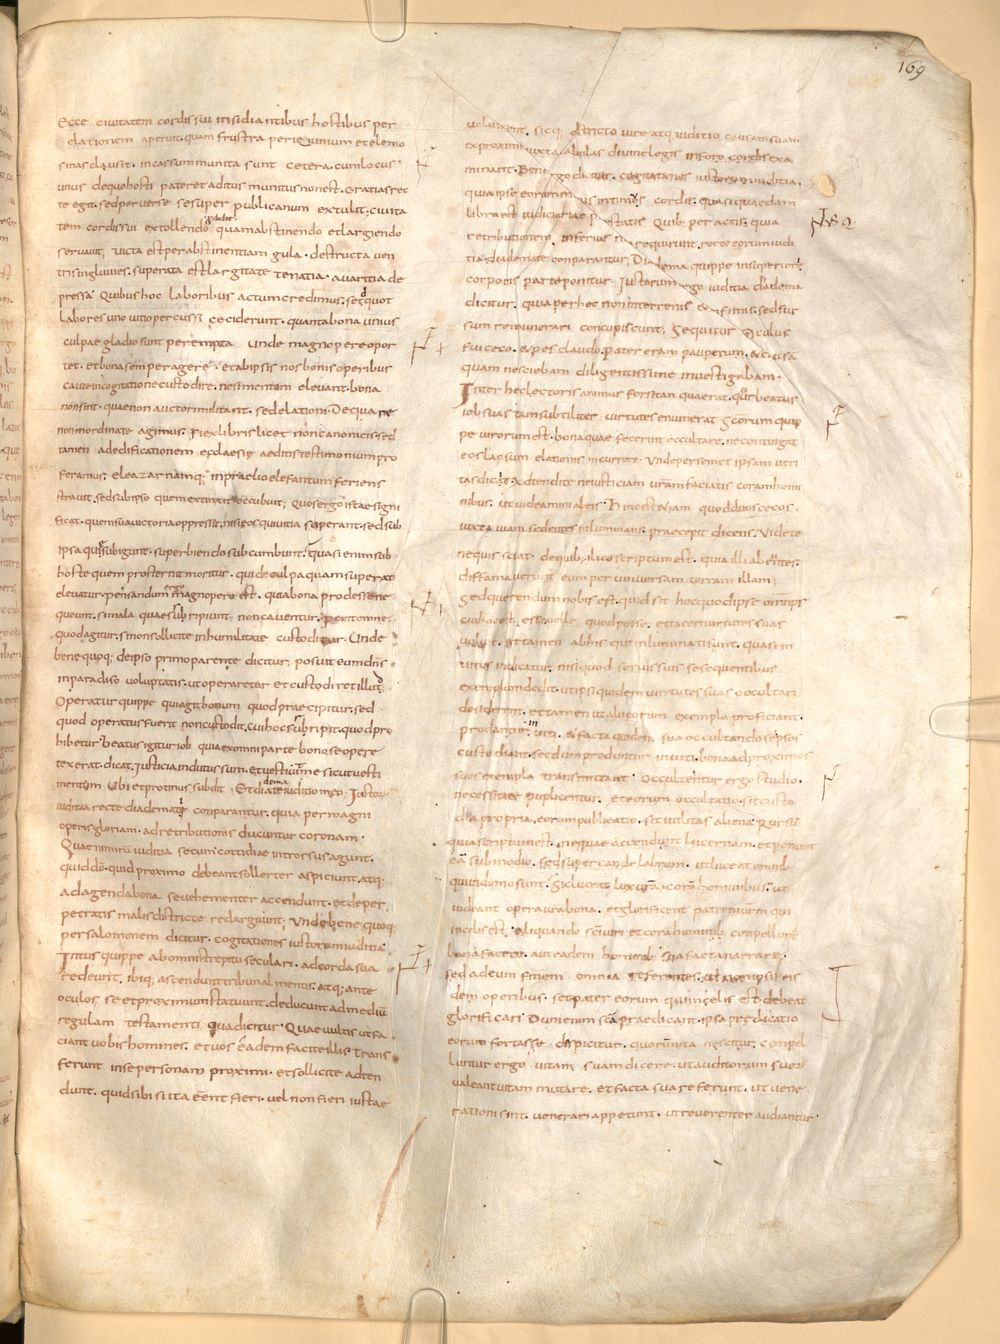 169
Ecce ciuitatem cordis sui insidiantibus hostibus per
elationem aperuit. quam frustra per ieiunium et elemo
sinas clausit. incassum munita sunt cetera. cum locus
unus de quo hosti pateret aditus munitus non est. Gratias rec
te egit. sed peruerse se super publicanum extulit. ciuita
tem cordis sui extollendo quam abstinendo et largiendo
seruauit; uicta est per abstinentiam gula. destructa uen
tris ingluuies. superata est largitate tenatia. auaritia de
pressa. Quibus hoc laboribus actum credimus. set quot
labores uno uitio percussi ceciderunt. quanta bona unius
culpae gladio sunt perempta. Unde magnopere opor
tet. et bona semper agere. et ab ipsis nos bonis operibus
caute in cogitatione custodire. ne si mentem eleuant. bona
non sint. quae non auctori militant. sed elationi. De qua re
non inordinate agimus. si ex libris licet non canonicis. sed
tamen ad edificationem ecclaesię aeditis testimonium pro
feramus. eleazar namq; in praelio elefantum feriens
strauit. sed sub ipso quem extinxit occubuit; Quos ergo iste signi
ficat. quem sua uictoria oppressit. nisi eos qui uitia superant. sed sub
ipsa quę subigunt. superbiendo subcumbunt. quasi enim sub
hoste quem prosternit moritur. qui de culpa quam superat
eleuatur. pensandum ergo magnopere est. quia bona prodesse ne
queunt. si mala quae subripiunt non cauentur. perit omne
quod agitur. si non sollicite in humilitate custoditur. Unde
bene quoq; de ipso primo parente dicitur. posuit eum dns
in paradiso uoluptatis. ut operaretur et custodiret illud.
Operatur quippe qui agit bonum quod praecipitur. sed
quod operatus fuerit non custodit. cui hoc subripit. quod pro
hibetur. Beatus igitur iob quia ex omni parte bono se opere
texerat. dicat. Iusticia indutus sum. et uestiui me sicut uesti
mentum. Ubi et protinus subdit. Et diademate iuditio meo. Iustorum
iuditia recte diademati conparantur. quia per magni
operis gloriam. ad retributionis ducuntur coronam.
Quae nimirum iuditia secum cottidiae introrsus agunt.
quid dō. quid proximo debeant sollerter aspiciunt. atq;
ad agenda bona se uehementer accendunt. et de per
petratis malis districte redarguunt; Unde bene quoq;
per salomonem dicitur. cogitationes iustorum iuditia.
Intus quippe ab omni strepitu seculari. ad corda sua
redeunt. ibiq; ascendunt tribunal mentis. atq; ante
oculos. se et proximum statuunt. deducunt ad mediū
regulam testamenti qua dicitur. Quae uultis ut fa
ciant uobis homines. et uos eadem facite illis. Trans
ferunt in se personam proximi. et sollicite adten
dunt. quid sibi si ita eēnt fieri. uel non fieri iustae
voluissent. sicq; stricto iure atq; iuditio causam suam
et proximi iuxta tabulas diuine legis in foro cordis exa
minant. Bene ergo dicitur. cogitationes iustorum iuditia.
quia ipse eorum motus intimus cordis. quasi quaedam
librant iudiciariae potestatis. Quib; per actis. quia
retributionem inferius non requirunt. recte eorum iudi
tia diademate conparantur; Diadema quippe in superiore
corporis parte ponitur. Iustorum ergo iuditia diadema
dicitur. quia per hoc non in terrenis et infimis. sed sur
sum remunerari concupiscunt; Sequitur. Oculus
fui ceco. et pes claudo. pater eram pauperum. et causā
quam nesciebam diligentissime inuestigabam.
Inter hec lectoris animus forsitan quaerat. qur beatus
iob suas tam subtiliter uirtutes enumerat. Scorum quip
pe uirorum est. bona quae fecerint occultare. ne contingat
eos lapsum elationis incurrere. Unde per semet ipsam ueri
tas dicit. Adtendite ne iusticiam uram faciatis coram homi
nibus. ut uideamini ab eis. Hinc est etiam quod duos cecos.
iuxta uiam sedentes inluminans. praecepit dicens. Videte
ne quis sciat. de quib; ilico scriptum est. quia illi abeuntes.
diffamauerunt eum per uniuersam terram illam;
Sed querendum nobis est. quid sit hoc quod ipse omnipr
cui hoc est esse uelle. quod posse. et tacere uirtutes suas
uoluit. et tamen ab his qui inluminati sunt. quasi in
uitus indicatur. nisi quod seruis suis se sequentibus
exemplum dedit. ut ipsi quidem uirtutes suas occultari
desiderent. et tamen ut alieorum exemplo proficiant.
prodantur inuiti. et facta quidem sua occultando se ipsos
custodiant. sed dum produntur inuiti. bona ad proximos
suos exempla transmittant. Occultentur ergo studio.
necessitate puplicentur. et eorum occultatio. sit custo
dia propria. eorum publicatio. sit utilitas aliena. Rursū
quia scriptum est. neque accendunt lucernam. et ponunt
eā sub modio. sed super candelabrum. ut luceat omnib;
qui in domo sunt. Sic luceat lux urā corā hominibus. ut
uideant opera ura bona. et glorificent patrem urm qui
in celis est. Aliquando sci uiri et corā hominib; conpelluntur
bona facere. aut eadem hominib; sua facta narrare.
sed ad eum finem omnia referentes. ut non ipsi eis
dem operibus. set pater eorum qui in celis est debeat
glorificari. Dum enim sca praedicant. ipsa predicatio
eorum fortasse dispicitur. quorum uita nescitur. conpel
luntur ergo uitam suam dicere. ut auditorum suorum
ualeant uitam mutare. et facta sua referunt. ut uene
rationi sint. uenerari appetunt. ut reuerenter audiantur